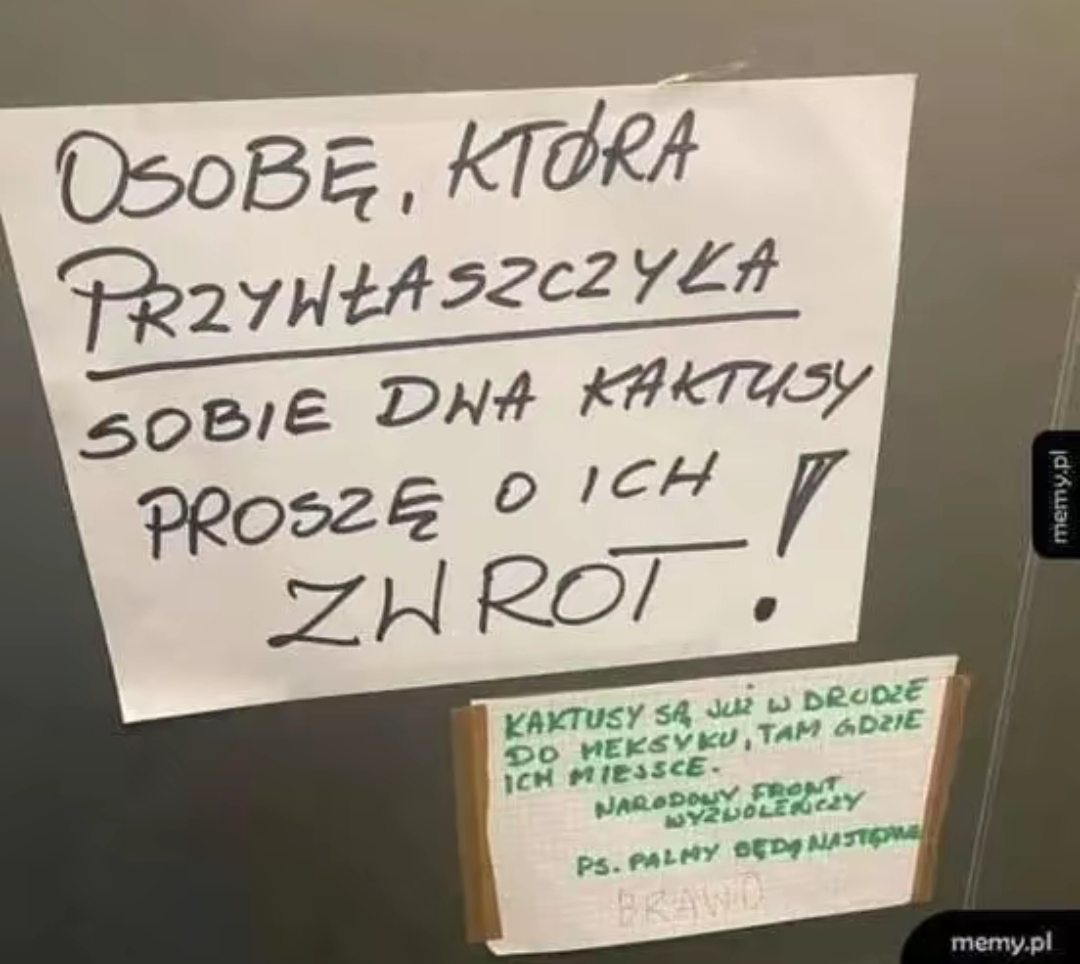 OSOBĘ, KTÓRA
PRZYWŁASZCZYŁA
SOBIE DWA KAKTUSY
PROSZĘ O ICH
ZWROT !
KAKTUSY SĄ JUŻ W DRODZE
DO MEKSYKU, TAM GDZIE
ICH MIEJSCE.
NARODOWY FRONT
WYZWOLEŃCZY
PS. PALMY BĘDĄ NASTĘPNE
BRAWO
memy.pl
memy.pl